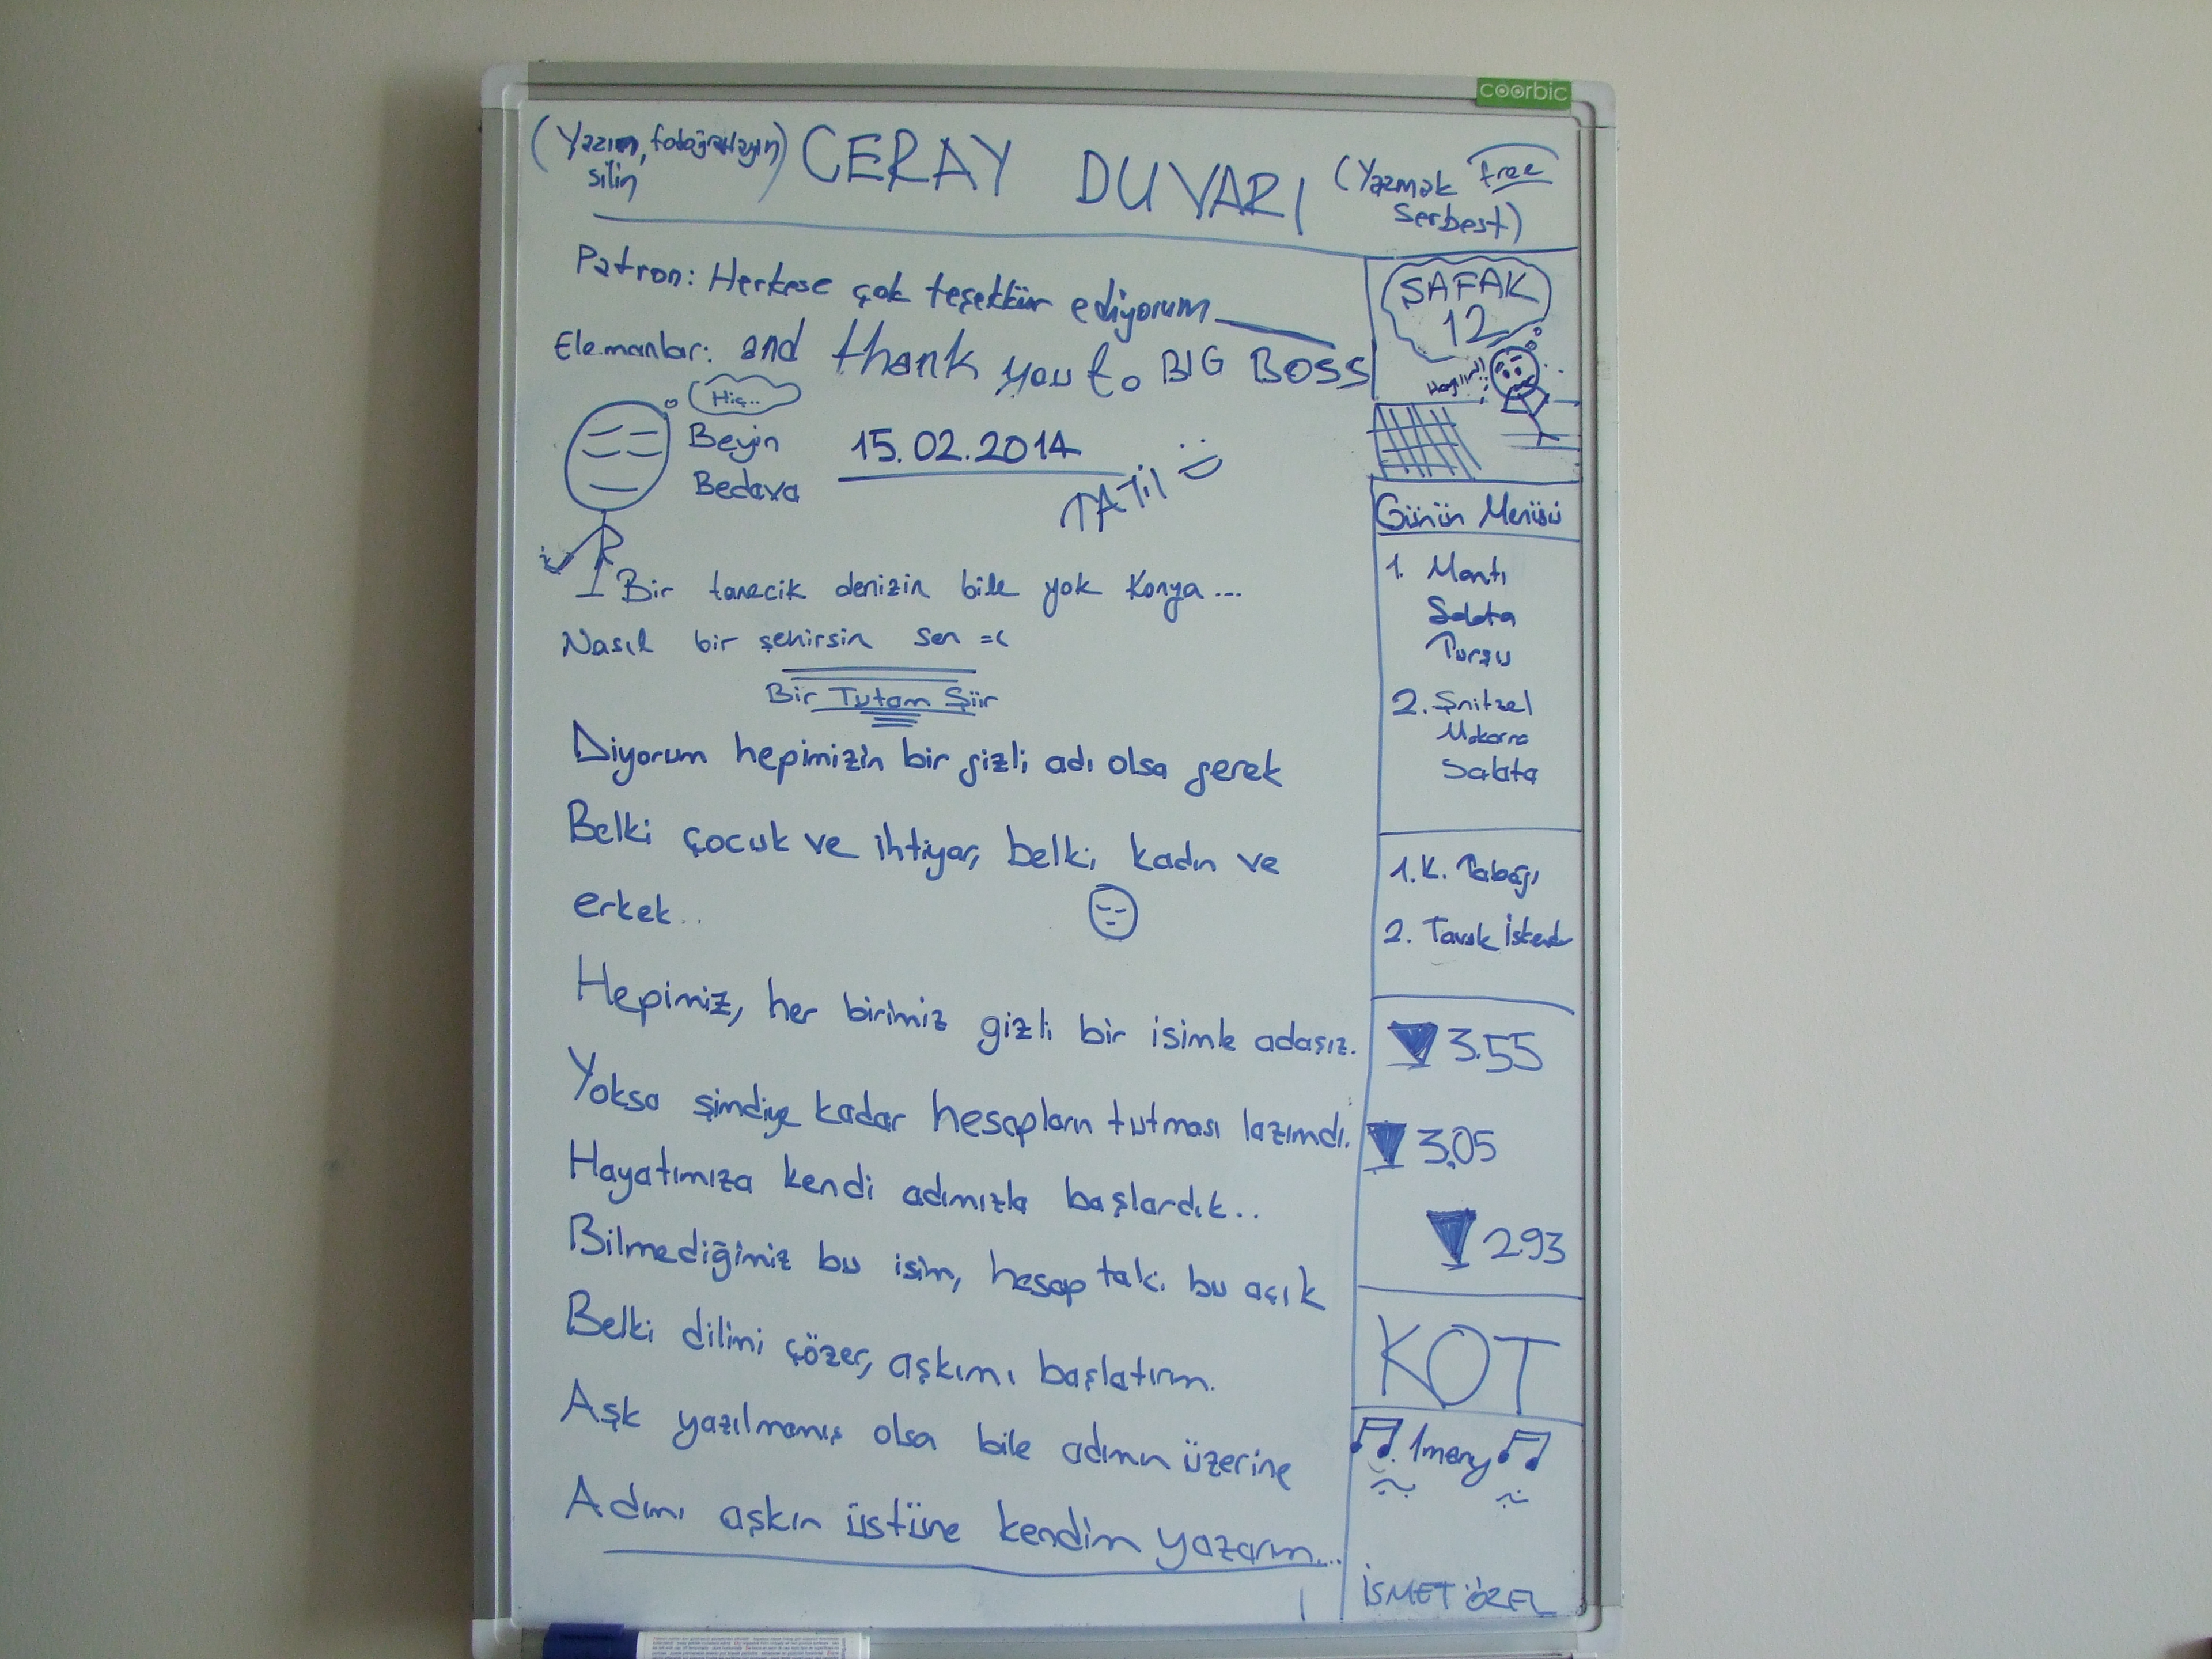 coorbic
(Yazın, fotoğraflayın
silin)
CERAY DUVARI
(Yazmak free
Serbest)
Patron: Herkese çok teşekkür ediyorum
Elemanlar: and thank you to BIG BOSS
Hiç..
Beyin
Bedava
15.02.2014
TATİL :)
Bir tanecik denizin bile yok Konya...
Nasıl bir şehirsin sen =(
Bir Tutam Şiir
Diyorum hepimizin bir gizli adı olsa gerek
Belki çocuk ve ihtiyar, belki kadın ve
erkek..
Hepimiz, her birimiz gizli bir isimle adaşız.
Yoksa şimdiye kadar hesapların tutması lazımdı.
Hayatımıza kendi adımızla başlardık..
Bilmediğimiz bu isim, hesaptaki bu açık
Belki dilimi çözer, aşkımı başlatırım.
Aşk yazılmamış olsa bile adımın üzerine
Adımı aşkın üstüne kendim yazarım...
ŞAFAK
12
Hayır!!
Günün Menüsü
1. Mantı
Salata
Turşu
2. Şnitzel
Makarna
Salata
1. K. Tabağı
2. Tavuk İskender
3.55
3.05
2.93
KOT
1
İSMET ÖZEL